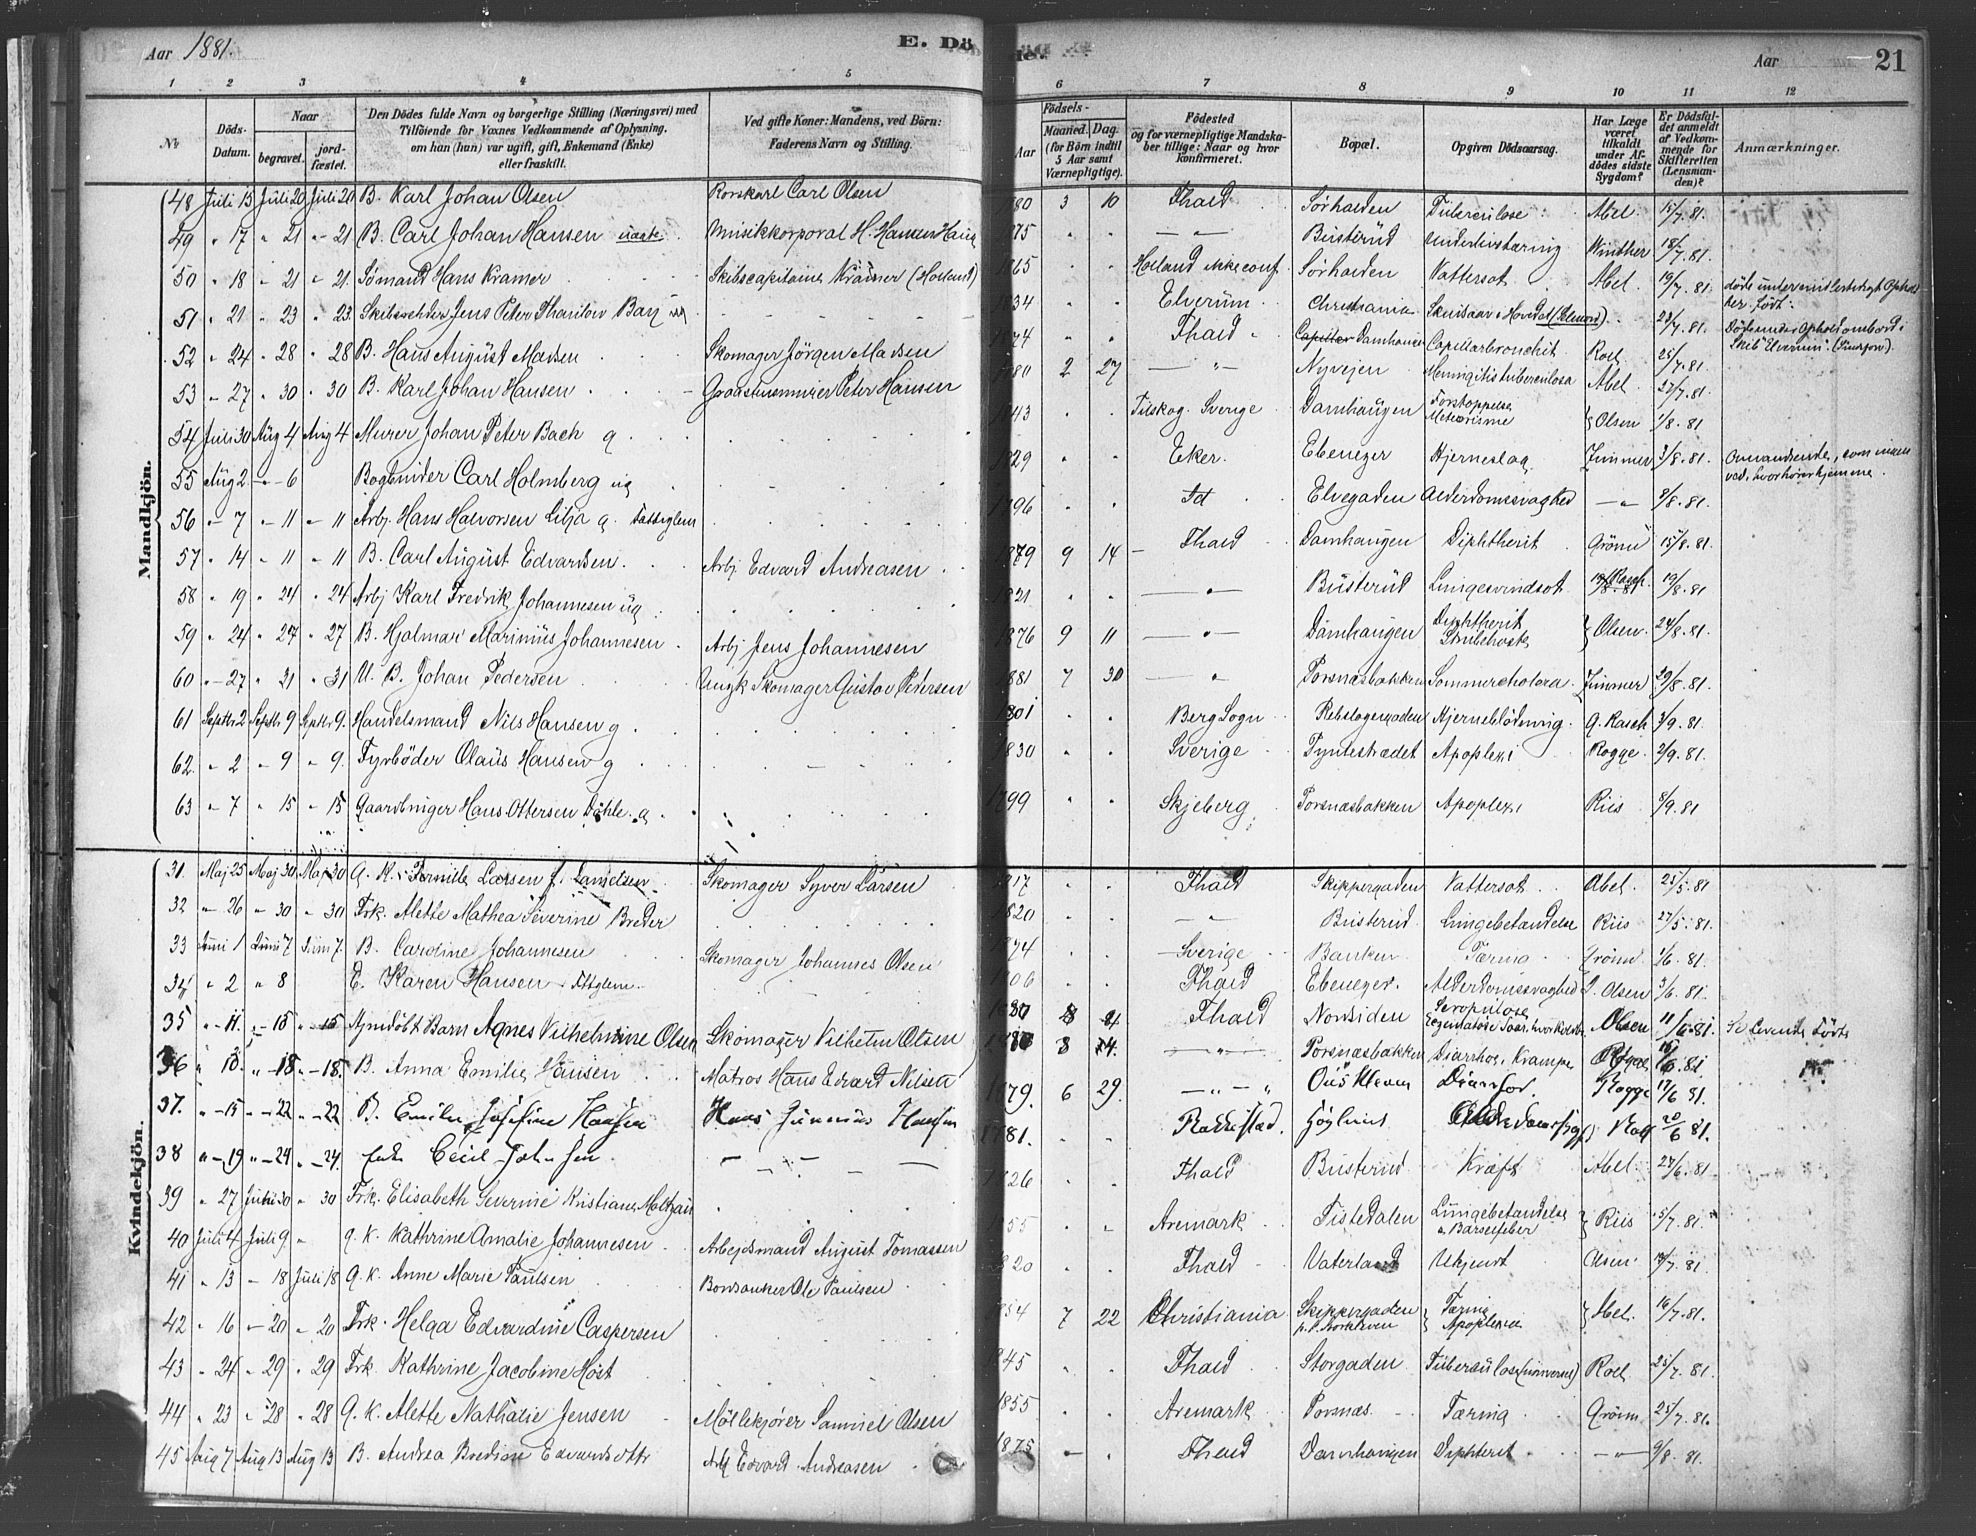 Aar 1881.
E. Dö
de.
Aar
21
1 2 3 4 5 6 7 8 9 10 11 12
No
Döds-Datum.
Naar
begravet.
jordfæstet.
Den Dödes fulde Navn og borgerlige Stilling (Næringsvei) med Tilföiende for Voxnes Vedkommende af Oplysning, om han (hun) var ugift, gift, Enkemand (Enke) eller fraskilt.
Ved gifte Koner: Mandens, ved Börn: Faderens Navn og Stilling.
Födsels-
Aar
Maaned. Dag.
(for Börn indtil 5 Aar samt Værnepligtige).
Födested og for værnepligtige Mandskaber tillige: Naar og hvor konfirmeret.
Bopæl.
Opgiven Dödsaarsag.
Har Læge været tilkaldt under Afdödes sidste Sygdom?
Er Dödsfaldet anmeldt af Vedkommende for Skifteretten (Lensmanden)?
Anmærkninger.
Mandkjön.
48 Juli 15 Juli 20 Juli 20 B. Karl Johan Olsen Carl Olsen 80 3 10 Fhald Sørhalden Tuberculose Abel 15/7.81.
49 " 17 " 21 " 21 B. Carl Johan Hansen Musikkorporal H. Hansen 75 " Busterud Underlivstæring Winther 18/7.81.
50 " 18 " 21 " 21. Sömand Hans Kramer Skibscapitaine Kramer (Holland) 1865 Holland ikke conf. Sørhalden Vattersot Abel. 19/7.81.
51 " 21 " 23 " 23 Skibsrheder Jens Peter Thanlow 1834 Elverum Christiania 23/7.81.
52 " 24 " 28 " 28 B. Hans August Madsen Skomager Jörgen Madsen 1874 Fhald Damhaugen Capillarbronchit Roll 25/7.81.
53 " 27 " 30 " 30 B. Karl Johan Hansen Peter Hansen 1880 2 27 " Nyvejen Meningitis tuberculosa Abel. 27/7.81.
54 Juli 30 Aug 4 Aug 4 Murer Johan Peter Bach g 1843 Sverige Damhaugen Forstoppelse Meteorisme Olsen 1/8.81
55 Aug 2 " 6 Bogbinder Carl Holmberg ug 1829 Eker. Ebenezer Hjerneslag Zimmer 3/8.81.
56 " 7 " 11 " 11 Arb. Hans Halvorsen Lilja g. Fattiglem 1796 Id Elvegaden Alderdomssvaghed " 8/8.81.
57 " 14 " 11 " 11 B. Carl August Edvardsen Arbj Edvard Andreasen 1879 9 14 Fhald Damhaugen Diphtherit Grönn 15/8.81.
58 " 19 " 24 " 24 Arbj Karl Fredrik Johannesen ug 1821 " Busterud Lungesvindsot Rasch. 19/8.81
59 " 24 " 27 " 27 B. Hjalmar Marinius Johannesen Arbj Jens Johannesen 1876 9 11 " Damhaugen Diphtherit Strubehoste Olsen 24/8.81.
60 " 27 " 31 " 31 U. B. Johan Pedersen Ungk Skomager Gustav Pedersen 1881 7 30 " Porsnæsbakken Sommercholera Zimmer 29/8.81.
61 Septbr 2 Septbr 9 Septbr 9. Handelsmand Nils Hansen g 1801 Berg Sogn Rebslagergaden Hjerneblödning G. Rasch. 3/9.81.
62 " 2 " 9 " 9. Fyrböder Olaus Hansen g 1830 Sverige Tyntestrædet Apoplexi Rogge. 2/9.81.
63 " 7 " 15 " 15 Gaardbruger Hans Ottersen Dahle g 1799 Skjeberg Porsnæsbakken Apoplexi Riis 8/9.81
Kvindekjön.
31. Maj 25 Maj 30 Maj 30 G. K. Pernille Larsen f. Danielsen Skomager Syver Larsen 17 Fhald Skippergaden Vattersot Abel 25/5.81
32 " 26 " 30 " 30 Frk. Alette Mathea Severine Breder 1820 " Busterud Lungebetændelse Riis 27/5.81.
33 Juni 1 Juni 7 Juni 7. B. Caroline Johannesen Skomager Johannes Olsen 1874 Sverige Banken Tæring Grönn 1/6.81.
34 " 2 " 8 E. Karen Hansen Fttglem 1806 Fhald Ebenezer. Alderdomssvaghed Olsen 3/6.81.
35 " 11. " 15 " 15 Nyndöbt Barn Agnes Vilhelmine Olsen Skomager Vilhelm Olsen 1880 8 4 Fhald Nordsiden Olsen 11/6.81. Se Levende Födte
36 " 13. " 18 " 18. B. Anna Emilie Hansen Matros Hans Edvard Nilsen 8 14. " Porsnæsbakken Diarrhoe, Krampe 6.81
37. " 15 " 22 " 22 B. Emilie Josefine Hansen Hans Gunerius Hansen 1879. 6 29. " Diarrhoe Rogge 17/6 81.
38 " 19 " 24 " 24. Enke Cecil Johnsen 1781. Rakkestad. Höglund Roll 20/6 81.
39 " 27 Juni 30 " 30 Frk. Elisabeth Severine Kristiane Moltzau 1826 Fhald Busterud Kræft Abel. 27/6.81
40 Juli 4 Juli 9. G. K. Kathrine Amalie Johannesen Arbejdsmand August Tomassen 1855 Aremark Tistedalen Lungebetændelse & Barselfeber Riis 5/7.81.
41 " 13 " 18 Juli 18 G. K. Anne Marie Paulsen Ole Paulsen 1820 Fhald Vaterland Ukjendt Olsen 14/7.81.
42 " 16 " 20 " 20 Frk. Helga Edvardine Caspersen 1854 7 22 Christiania Skippergaden Tæring Apoplexia Abel. 16/7.81.
43 " 24 " 29 " 29 Frk. Kathrine Jacobine Höst 1845 Fhald Storgaden Tuberculose (universel) Roll 25/7.81.
44 " 23 " 28 " 28 G. K. Alette Nathalie Jensen Möllekjörer Samuel Olsen 1855 Aremark Porsnæs. Tæring Grönn 25/7.81.
45 Aug 7 Aug 13 Aug 13 B. Andrea Bredine Edvardsdttr Arbj Edvard Andreasen 1875 Fhald Damhaugen Diphterit " 9/8.81.